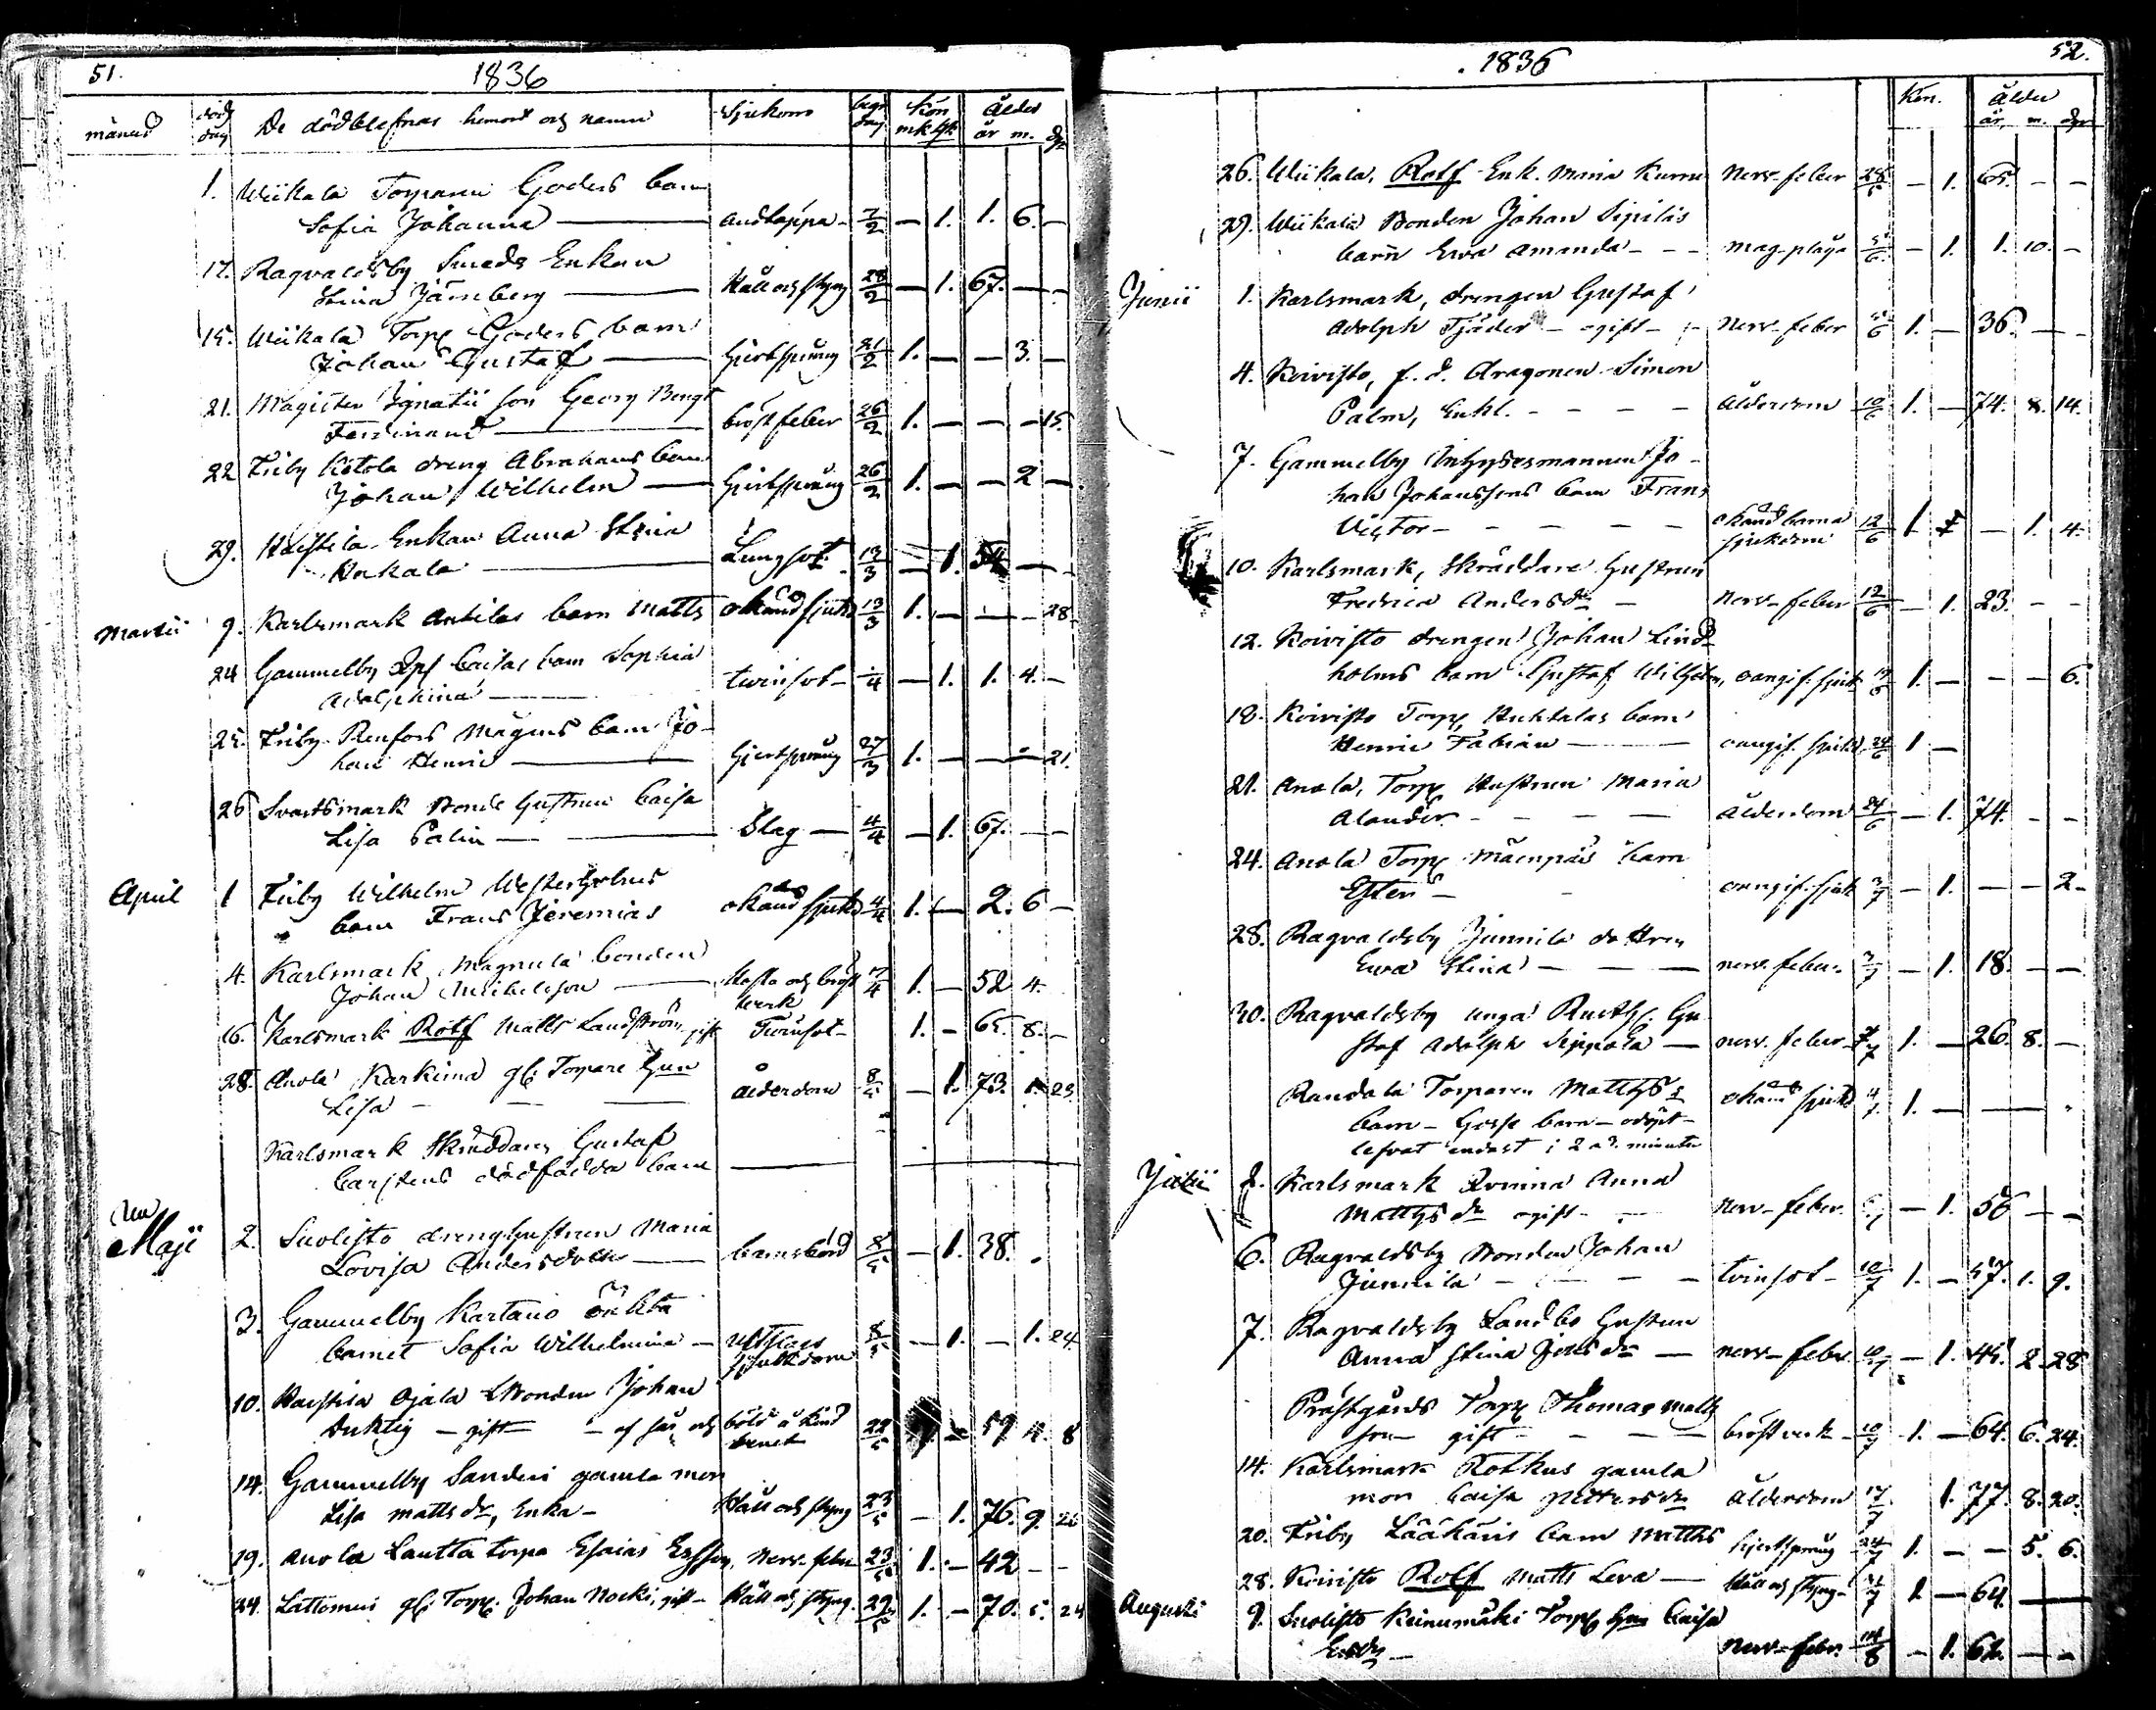 51.
1836
månad död dag De dödblefnas hemort och namn Sjukdom begr dag Kön mk qk Ålder år m. dgr
1. Wiikala Torparen Goders barn
Sofia Johanna andtäppa 7/2 — 1. 1. 6. —
12. Ragvaldsby Smeds Enkan
Stina Järnberg Håll och styng 28/2 — 1. 67. — —
15. Wiikala Torp. Goders barn
Johan Gustaf Hjertsprång 21/2 1. — — 3. —
21. Magister Ignatii son Georg Bengt
Ferdinand bröstfeber 26/2 1. — — — 15.
22 Friby Kötola dreng Abrahams barn
Johan Wilhelm Hjertsprång 26/2 1. — — 2 —
29. Haistila Enkan Anna Stina
Hakala Lungsot 13/3 — 1. 54 — —
Martii 9. Karlsmark Antilas barn Matts okänd sjukd 13/3 1. — — — 28.
24 Gammelby Caisas barn Sophia
Adolphina twinsot — /4 — 1. 1. 4. —
25. Friby Renfors Magnus barn Jo-
han Henric Hjertsprång 27/3 1. — — — 21.
26 Svartsmark Bonde Hustrun Caisa
Lisa Palin — Slag — 4/4 — 1. 67. — —
April 1 Friby Wilhelm Westerholms
barn Frans Jeremias okänd sjukd 4/4 1. — 2. 6 —
4. Karlsmark Magnula bonden
Johan Michelsson Hosta och bröst
werk 17/4 1. — 52 4.
16. Karlsmark Rotf Matts Landström gift Twinsot — 1. — 65. 8. —
28. Anola Karkima gl. Torpare Hun
Lisa — ålderdom 8/5 — 1. 73. 1. 23.
Karlsmark Skräddare Gustaf
Carstens dödfödda barn
Maji 2. Suolisto dreng hustrun Maria
Lovisa Andersdotter barnsbörd 8/5 — 1. 38.
3. Gammelby Kartano oäkta
barnet Sofia Wilhelmina — utslags
sjukdom 8/5 — 1. — 1. 24.
10. Haistila Ojala Bonden Johan
Duktig — gift — af sår och böld å kind
benet 22/5 — 59 11. 8
14. Gammelby Sanderi gamla mor
Lisa Mattsdr, Enka — Håll och styng 23/5 — 1. 76. 9. 26
19. Anola Lautta torpa Esaias Ersson, Nerv-feber 23/5 1. — 42 — —
24. Lattomeri gl. Torp. Johan Nocki, gift — Håll och styng 29/5 1. — 70. 5. 24
1836
52.
Kön. Ålder
år, m. dgr
26. Wiikala, Rotf Enk. Maria Nerv-feber 28/5 — 1. 65. — —
29. Wiikala Bonden Johan Sipiläs
barn Ewa Amanda — — mag-plåga 5/6 — 1. 1. 10. —
Junii 1. Karlsmark, drengen Gustaf
Adolph Tjäder — ogift — Nerv-feber 5/6 1. — 36. — —
4. Koivisto, f. d. Dragonen Simon
Palm, Enkl. — — — — ålderdom 10/6 1. — 74. 8. 14.
7. Gammelby Inhysesmannen Jo-
han Johanssons barn Frans
Victor — — — — — okänd barna
sjukdom 12/6 1 — 1. 4.
10. Karlsmark, Skräddare Hustrun
Fredrica Andersdr — Nerv-feber 12/6 — 1. 23. — —
12. Koivisto drengen Johan Lind-
holms barn Gustaf Wilhelm, oangif. sjukd 1. — — — 6.
18. Koivisto Torp. Huhtalas barn
Henric Fabian — oangif. sjukd. 24/6 1 —
21. Anola, Torp. Hustrun Maria
Alander — — — — ålderdom 24/6 — 1. 74. — —
24. Anola Torp. Mäenpää barn
Ester — oangif. sjukd 3/7 — 1. — — 2.
28. Ragvaldsby Junnila dottren
Ewa Stina — — — nerv. feber. 3/7 — 1. 18. — —
30. Ragvaldsby unga Rusth. Gu-
staf Adolph Seppälä — nerv. feber 7/7 1. — 26. 8. —
Randala Torparen Matths's
barn — Gosse barn — odöpt —
lefvat endast i 2 a 3. minuter okänd sjukd 4/7. 1. — —
Julii 2. Karlsmark Qvinna Anna
Matthsdr ogift — Nerv-feber. — 1. 56 — —
6. Ragvaldsby Bonden Johan
Junnila — — — — tvinsot — 10/7 1. — 57. 1. 9.
7. Ragvaldsby Landbo Hustrun
Anna Stina Jöransdr — nerv-feber. 10/7 — 1. 45. 2. 28
Prästgårds Torp. Thomas Matts
son gift — — — bröstverk — 10/7 1. — 64. 6. 24.
14. Karlsmark Rotkus gamla
mor Caisa Pettersdr ålderdom 17/7 1. 77. 8. 20.
20. Friby Lääkäris barn Matths hjertsprång 24/7 1. — — 5. 6.
28. Koivisto Rotf Matts Leva — Håll och styng — 31/7 1 — 64. — —
Augusti 9. Suolisto Keinumäki Torp. Hun Caisa
Ersdr — Nerv-feber. 14/8 — 1. 62. — —